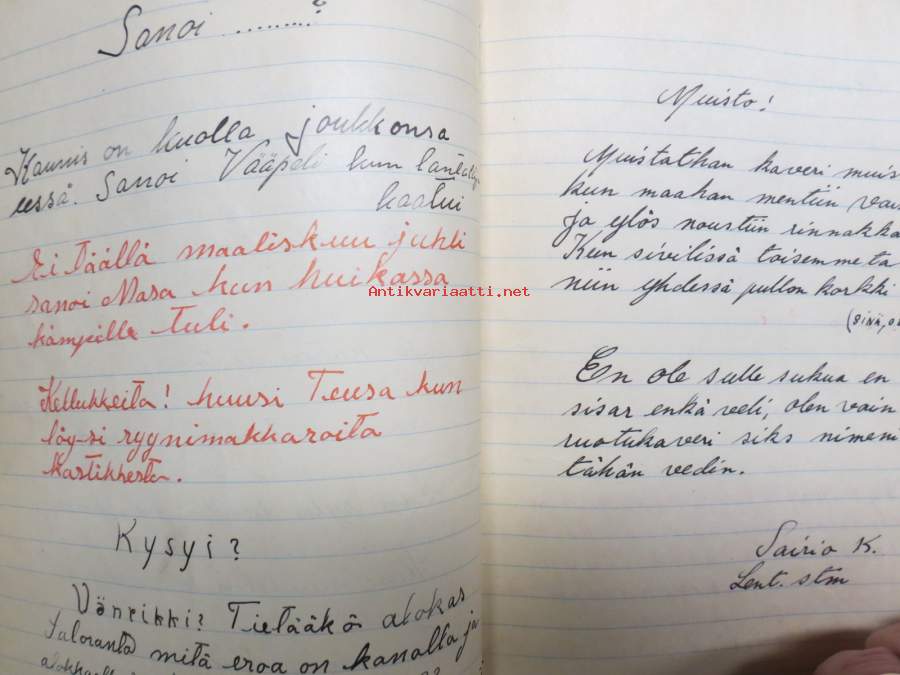 Sanoi .........?
Kaunis on kuolla joukkonsa
eessä. Sanoi Vääpeli kun
kastui
Ei täällä maaliskuu juhli
sanoi Masa kun huikassa
kämpille tuli.
Kellukkeita! huusi Teusa kun
löysi ryynimakkaroita
kastikkesta.
Kysyi?
Vänrikki? Tietääkö alokas
Saloranta mitä eroa on kanalla ja
Muisto!
Muistathan kaveri muis
kun maahan mentiin vais
ja ylös noustiin rinnakka
Kun sivilissä toisemme ta
niin yhdessä pullon korkki
(SINÄ, O
En ole sulle sukua en
sisar enkä veli, olen vain
ruotukaveri siks nimeni
tähän vedin.
Sairio K.
Lent. stm
Antikvariaatti.net